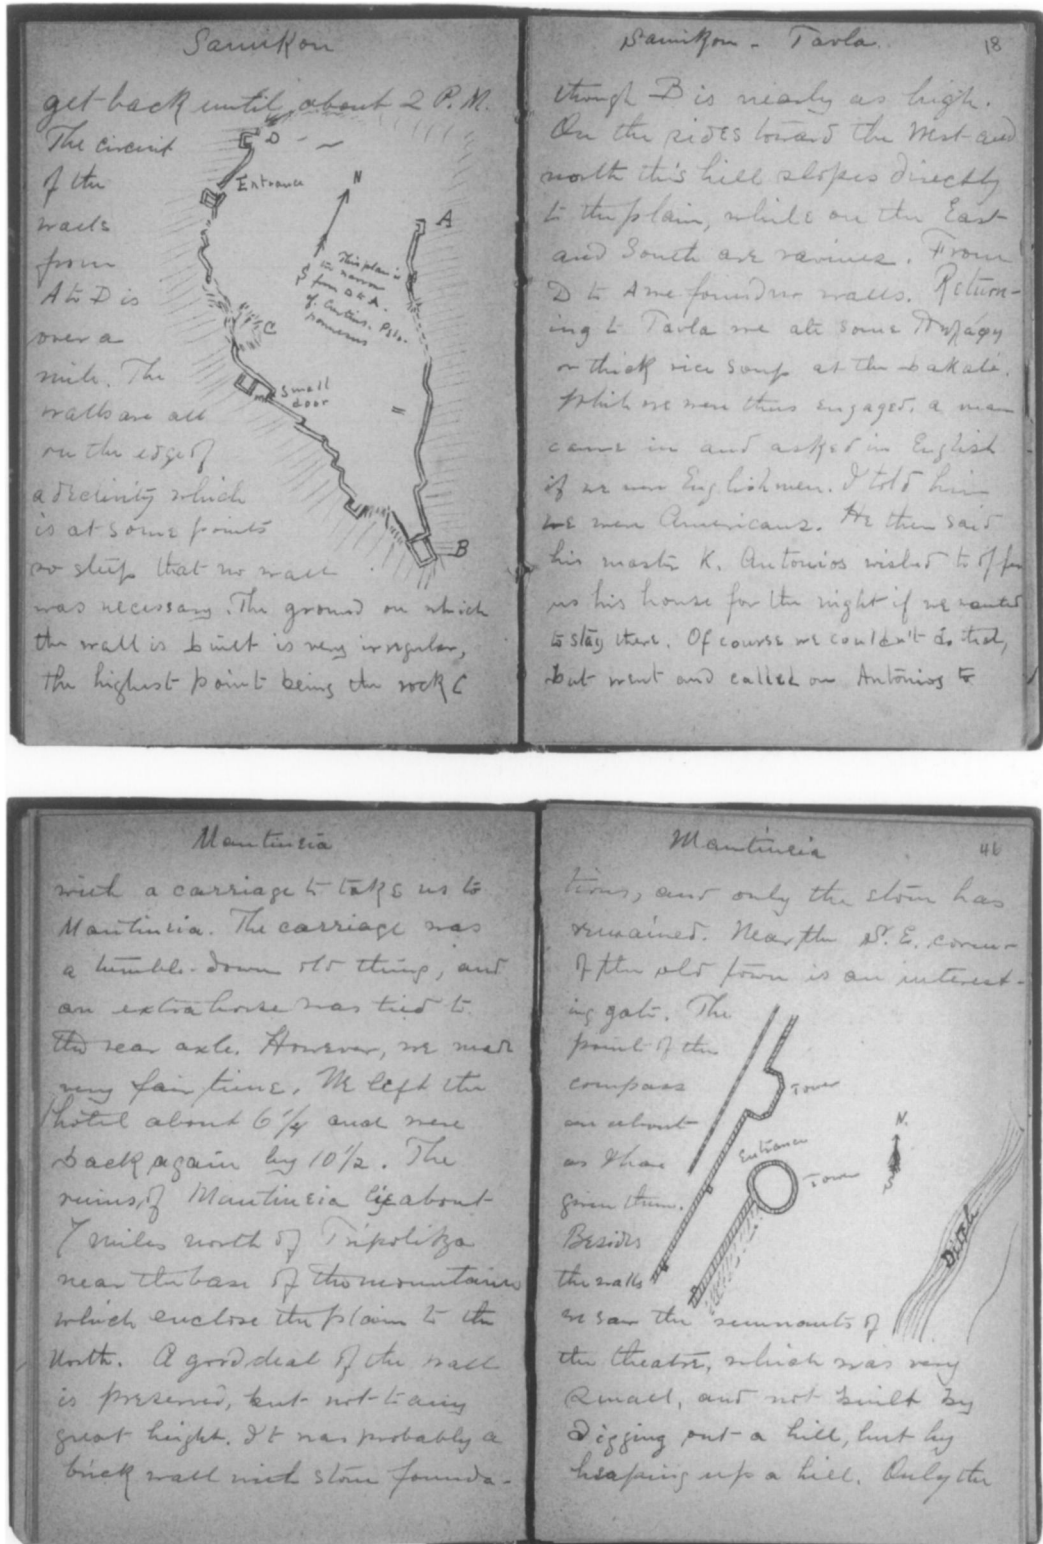 Samikon
get back until about 2 P.M.
The circuit
of the
walls
from
A to D is
over a
mile. The
walls are all
on the edge of
a declivity which
is at some points
so steep that no wall
was necessary. The ground on which
the wall is built is very irregular,
the highest point being the rock C
D
Entrance
N
A
This plan is
too narrow
from D & A.
C
Small
door
B
Samikon - Tavla.
18
though B is nearly as high.
On the sides toward the West and
north this hill slopes directly
to the plain, while on the East
and South are ravines. From
D to A we found no walls. Return-
ing to Tavla we ate some
or thick rice soup at the bakali.
While we were thus engaged, a man
came in and asked in English
if we were Englishmen. I told him
we were Americans. He then said
his master K. Antonios wished to offer
us his house for the night if we wanted
to stay there. Of course we couldn't do that,
but went and called on Antonios to
Mantineia
with a carriage to take us to
Mantineia. The carriage was
a tumble-down old thing, and
an extra horse was tied to
the rear axle. However, we made
very fair time. We left the
hotel about 6 1/4 and were
back again by 10 1/2. The
ruins of Mantineia lie about
7 miles north of Tripolitza
near the base of the mountains
which enclose the plain to the
North. A good deal of the wall
is preserved, but not to any
great height. It was probably a
brick wall with stone founda-
Mantineia
46
tions, and only the stone has
remained. Near the S. E. corner
of the old town is an interest-
ing gate. The
point of the
compass
are about
as I have
given them.
Besides
the walls
we saw the remnants of
the theatre, which was very
small, and not built by
digging out a hill, but by
heaping up a hill. Only the
Tower
Entrance
Tower
N.
S
Ditch